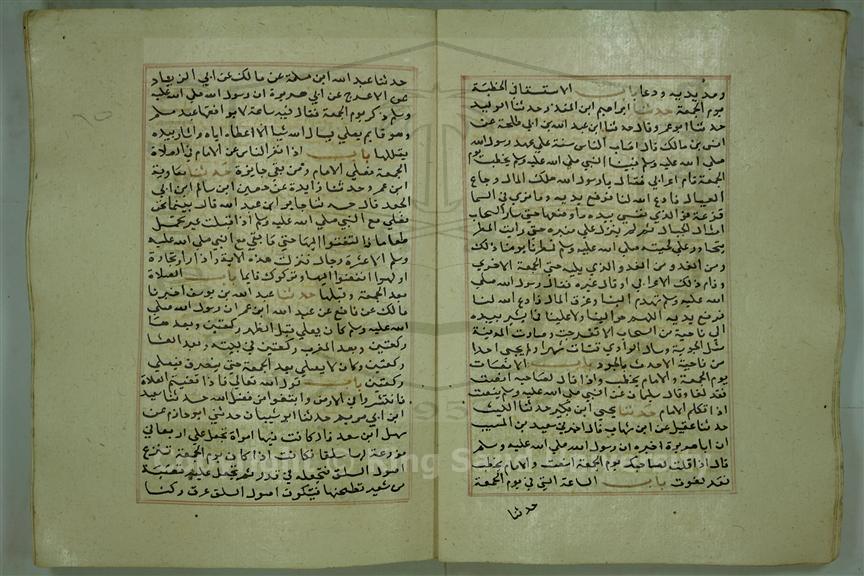 ومد يديه ودعا باب الاستسقاء في الخطبة
يوم الجمعة حدثنا ابراهيم ابن المنذر وحدثنا الوليد
حدثنا ابو عمرو قال حدثنا ابن عبد الله بن ابي طلحة عن
انس بن مالك قال اصاب الناس سنة علي عهد رسول الله
صلي الله عليه وسلم فبينا النبي صلي الله عليه وسلم يخطب يوم
الجمعة قام اعرابي فقال يا رسول الله هلك المال وجاع
العيال فادع الله لنا فرفع يديه وما نري في السما
قزعة فو الذي نفسي بيده ما وضعها حتي ثار السحاب
امثال الجبال ثم لم ينزل علي منبره حتي رايت المطر
يتحادر علي لحيته صلي الله عليه وسلم فمطرنا يومنا ذلك
ومن الغد ومن الغد والذي يليه حتي الجمعة الاخري
وقام ذلك الاعرابي او قال غيره فقال رسول الله صلي
الله عليه وسلم تهدم البنا وغرق المال فادع الله لنا
فرفع يديه اللهم حوالينا ولا علينا فما يشير بيده
الي ناحية من السحاب الا تفرجت وصارت المدينة
مثل الجوبة وسال الوادي قناة شهرا ولم يجي احدا
من ناحية الا حدث بالجود باب الانصات
يوم الجمعة والامام يخطب واذا قال لصاحبه انصت
فقد لغا وقال سلمان عن النبي صلي الله عليه وسلم ينصت
اذا تكلم الامام حدثنا يحيي ابن بكير حدثنا الليث
حدثنا عقيل عن ابن شهاب قال اخبرني سعيد بن المسيب
ان ابا هريرة اخبره ان رسول الله صلي الله عليه وسلم
قال اذا قلت لصاحبك يوم الجمعة انصت والامام يخطب
فقد لغوت باب الساعة التي في يوم الجمعة
حدثنا
حدثنا عبد الله ابن مسلمة عن مالك عن ابي الزناد
عن الاعرج عن ابي هريرة ان رسول الله صلي الله عليه
وسلم ذكر يوم الجمعة فقال فيه ساعة لا يوافقها عبد مسلم
وهو قايم يصلي يسال الله شيا الا اعطاه اياه واشار بيده
يقللها باب اذا نفر الناس عن الامام في الصلاة
الجمعة فصلي الامام ومن بقي جايزة حدثنا معاوية
ابن عمرو حدثنا زايدة عن حصين ابن سالم ابن ابي
الجعد قال حدثنا جابر ابن عبد الله قال بينما نحن
نصلي مع النبي صلي الله عليه وسلم اذ اقبلت عير تحمل
طعاما فالتفتوا اليها حتي ما بقي مع النبي صلي الله عليه
وسلم الا عشرة رجلا فنزلت هذه الاية واذا راو تجارة
او لهوا انفضوا اليها وتركوك قايما باب الصلاة
بعد الجمعة وقبلها حدثنا عبد الله بن يوسف اخبرنا
مالك عن نافع عن عبد الله ابن عمر ان رسول الله صلي
الله عليه وسلم كان يصلي قبل الظهر ركعتين وبعدها
ركعتين وبعد المغرب ركعتين في بيته وبعد العشا
ركعتين وكان لا يصلي بعد الجمعة حتي ينصرف فيصلي
ركعتين باب قول الله تعالي فاذا قضيتم الصلاة
فانتشروا في الارض وابتغوا من فضل الله حدثنا سعيد
ابن ابي مريم حدثنا ابو غسان حدثني ابو حازم عن
سهل ابن سعد قال كانت فينا امراة تجعل علي اربعا في
مزرعة لها سلقا فكانت اذا كان يوم الجمعة تنزع
اصول السلق فتجعله في قدر ثم تجعل عليه قبضة
من شعير تطحنها فتكون اصول السلق عرقه وكنا